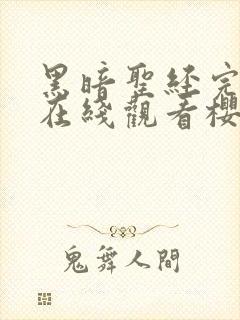 黑暗聖經完
在綫觀看櫻
鬼舞人間